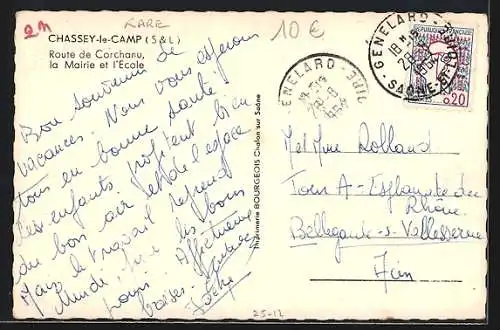 RARE
10 €
CHASSEY-le-CAMP (S & L)
Route de Corchanu,
la Mairie et l'École
Bon souvenir de
vacances. Nous vous espérons
tous en bonne santé.
Les enfants profitent bien
du bon air et de l'espace
Mais le travail reprend
Mardi pour
bons
baisers. Affectueux
GENELARD
SAÔNE-ET-LOIRE
GENELARD
RÉPUBLIQUE FRANÇAISE
POSTES
0,20
Imprimerie BOURGEOIS Chalon sur Saône
Mr Mme Rolland
Tour A - Esplanade du
Rhône
Bellegarde-s-Valserine
Ain
25-12